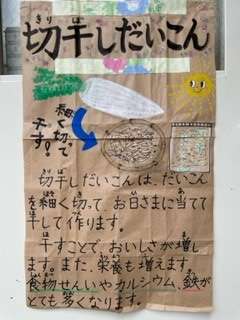 切干しだいこん
きり ぼ
細く切って
干す!
切干しだいこんは、だいこん
を細く切って、お日さまに当てて
干して作ります。
干すことで、おいしさが増し
ます。また、栄養も増えます。
食物せんいやカルシウム、鉄が
とても多くなります。